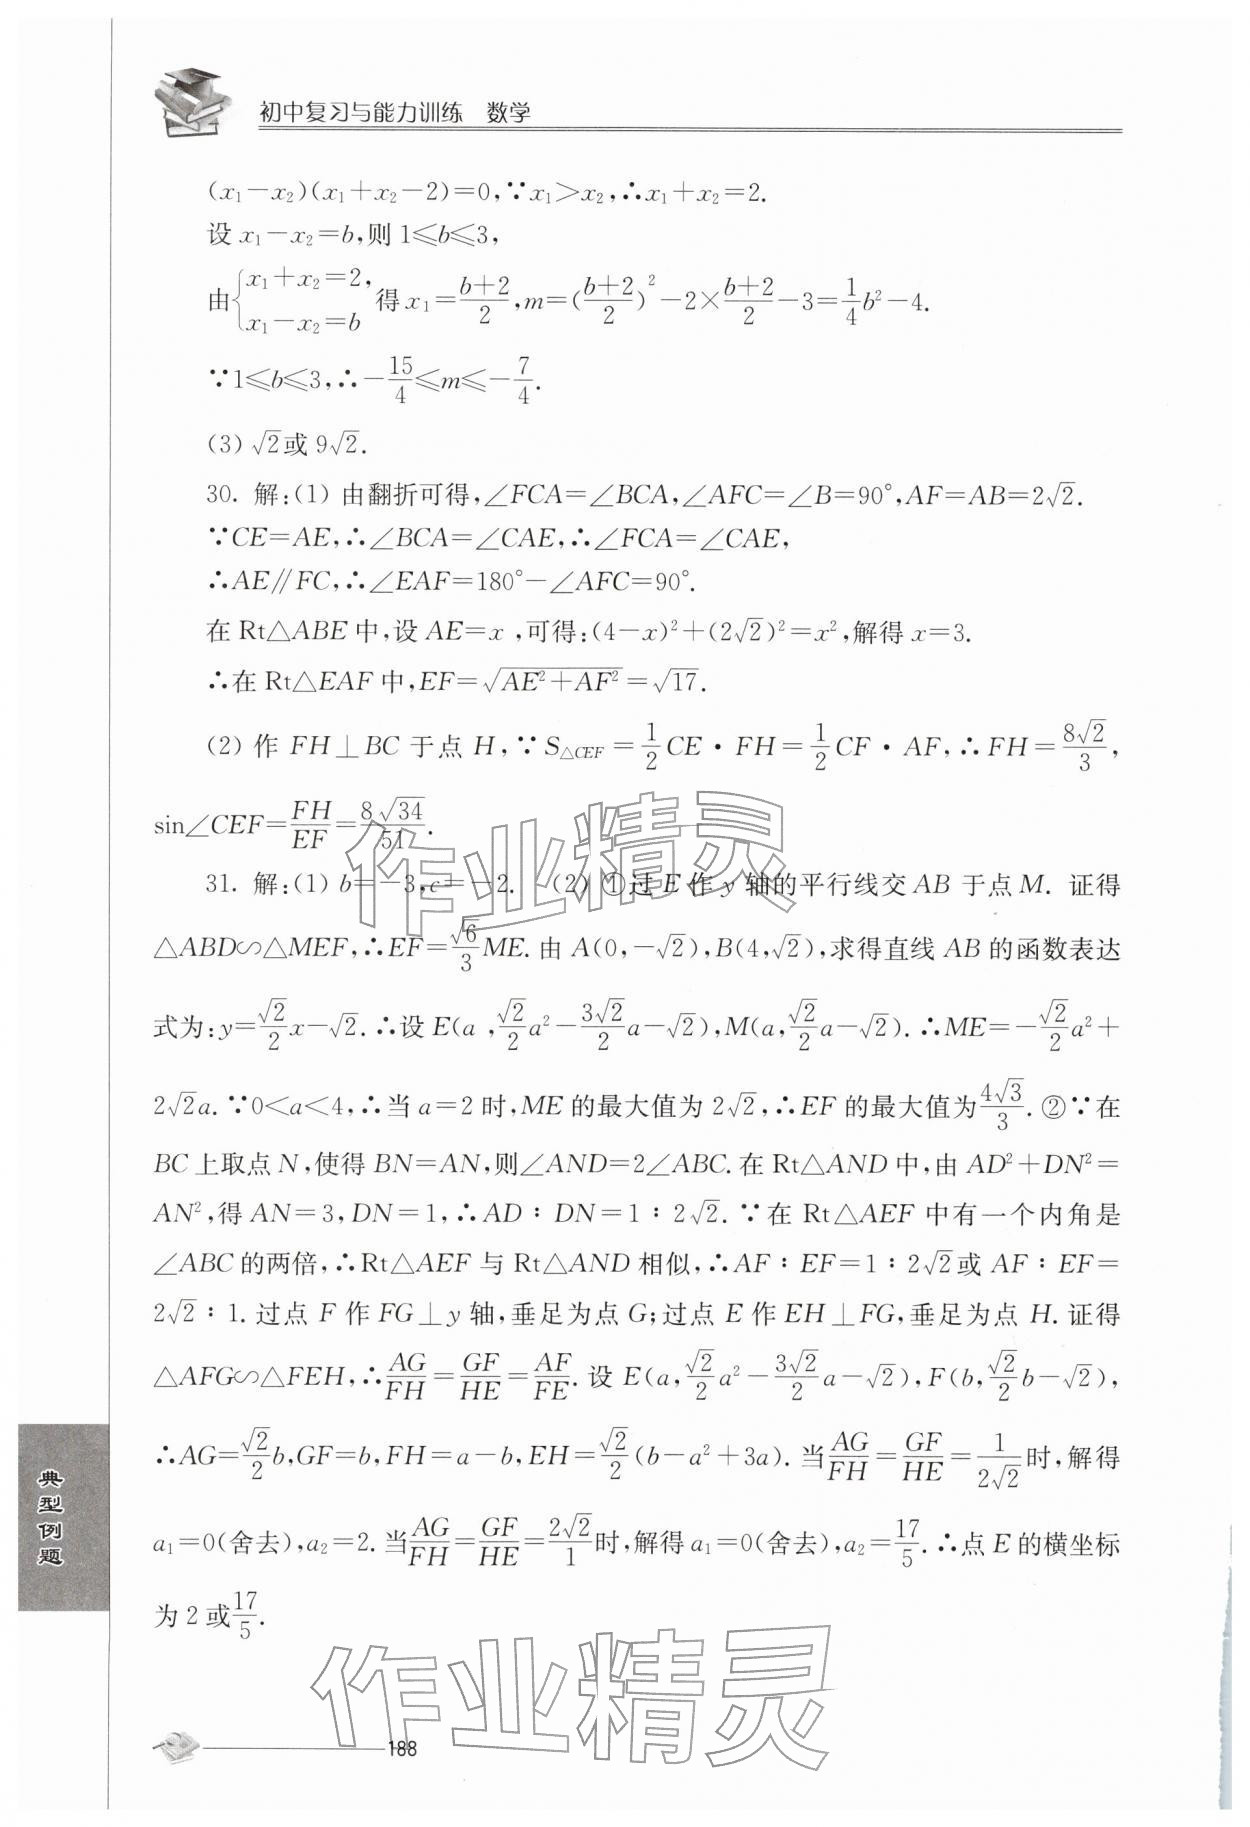 初中复习与能力训练 数学
(x₁－x₂)(x₁＋x₂－2)＝0,∵x₁＞x₂,∴x₁＋x₂＝2.
设 x₁－x₂＝b,则 1≤b≤3,
由{x₁＋x₂＝2, x₁－x₂＝b 得 x₁＝(b＋2)/2,m＝((b＋2)/2)²－2×(b＋2)/2－3＝1/4b²－4.
∵1≤b≤3,∴－15/4≤m≤－7/4.
(3) √2或 9√2.
30. 解:(1) 由翻折可得,∠FCA＝∠BCA,∠AFC＝∠B＝90°,AF＝AB＝2√2.
∵CE＝AE,∴∠BCA＝∠CAE,∴∠FCA＝∠CAE,
∴AE∥FC,∴∠EAF＝180°－∠AFC＝90°.
在 Rt△ABE 中,设 AE＝x ,可得:(4－x)²＋(2√2)²＝x²,解得 x＝3.
∴在 Rt△EAF 中,EF＝√(AE²＋AF²)＝√17.
(2) 作 FH⊥BC 于点 H,∵S△CEF＝1/2 CE·FH＝1/2 CF·AF,∴FH＝8√2/3,
sin∠CEF＝FH/EF＝8√34/51.
31. 解:(1) b＝－3,c＝－2. (2) ①过 E 作 y 轴的平行线交 AB 于点 M. 证得
△ABD∽△MEF,∴EF＝√6/3 ME. 由 A(0,－√2),B(4,√2),求得直线 AB 的函数表达
式为:y＝√2/2 x－√2. ∴设 E(a ,√2/2 a²－3√2/2 a－√2),M(a,√2/2 a－√2). ∴ME＝－√2/2 a²＋
2√2a. ∵0＜a＜4,∴当 a＝2 时,ME 的最大值为 2√2,∴EF 的最大值为4√3/3. ②∵在
BC 上取点 N,使得 BN＝AN,则∠AND＝2∠ABC. 在 Rt△AND 中,由 AD²＋DN²＝
AN²,得 AN＝3,DN＝1,∴AD∶DN＝1∶2√2. ∵在 Rt△AEF 中有一个内角是
∠ABC 的两倍,∴Rt△AEF 与 Rt△AND 相似,∴AF∶EF＝1∶2√2或 AF∶EF＝
2√2∶1. 过点 F 作 FG⊥y 轴,垂足为点 G;过点 E 作 EH⊥FG,垂足为点 H. 证得
△AFG∽△FEH,∴AG/FH＝GF/HE＝AF/FE. 设 E(a,√2/2 a²－3√2/2 a－√2),F(b,√2/2 b－√2),
∴AG＝√2/2 b,GF＝b,FH＝a－b,EH＝√2/2(b－a²＋3a). 当AG/FH＝GF/HE＝1/(2√2)时,解得
a₁＝0(舍去),a₂＝2. 当AG/FH＝GF/HE＝2√2/1时,解得 a₁＝0(舍去),a₂＝17/5. ∴点 E 的横坐标
为 2 或17/5.
典型例题
作业精灵
作业精灵
188